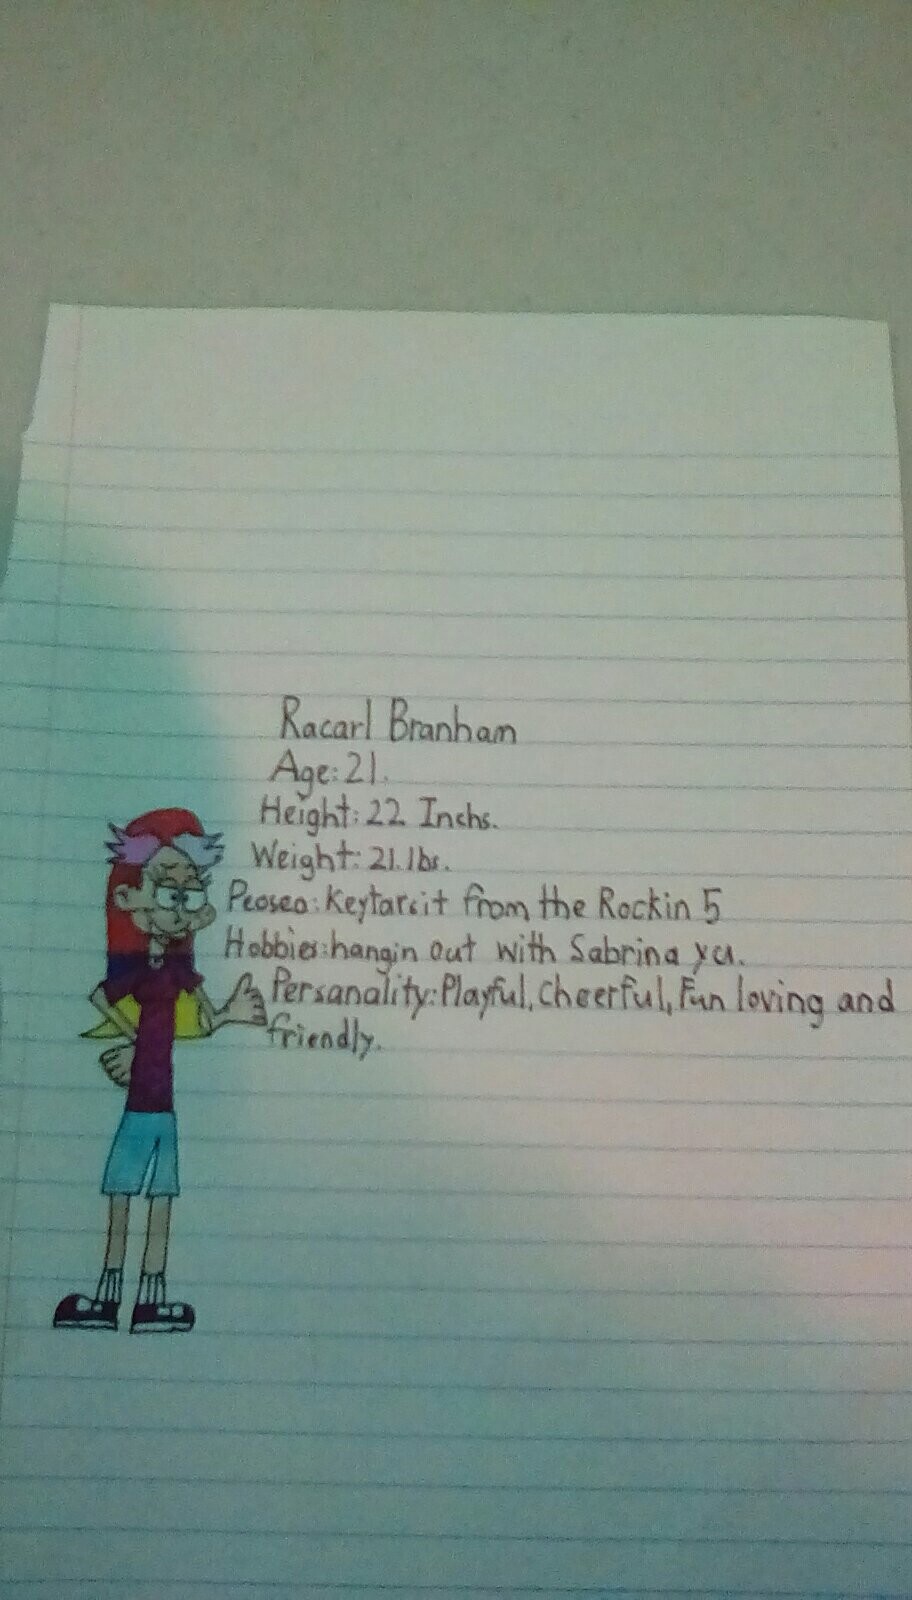 Racarl Branham
Age: 21.
Height: 22 Inchs.
Weight: 21.lbs.
Peoseo: Keytarsit from the Rockin 5
Hobbies: hangin out with Sabrina yu.
Persanality: Playful, Cheerful, Fun loving and
friendly.